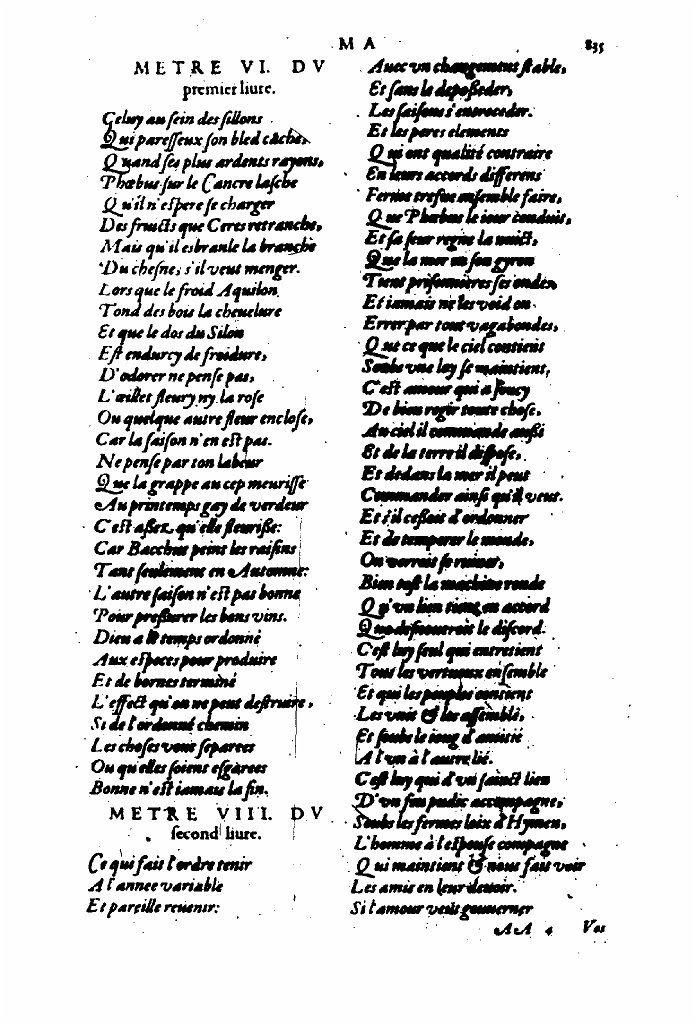 MA 835
METRE VI. DV
premier liure.
Celuy au sein des sillons
Qui paresseux son bled cache,
Quand ses plus ardents rayons,
Phœbus sur le Cancre lasche
Qu'il n'espere se charger
Des fruicts que Ceres retranche,
Mais qu'il esbranle la branche
Du chesne, s'il veut menger.
Lors que le froid Aquilon
Tond des bou la cheuelure
Et que le dos du Silon
Est endurcy de froidure,
D'odorer ne pense pas,
L'œillet fleury ny la rose
Ou quelque autre fleur enclose,
Car la saison n'en est pas.
Ne pense par ton labeur
Que la grappe au cep meurisse
Au printemps gay de verdeur
C'est assez qu'elle fleurisse:
Car Bacchus peint les raisins
Tant seulement en Automne:
L'autre saison n'est pas bonne
Pour pressurer les bons vins.
Dieu a le temps ordonné
Aux especes pour produire
Et de bornes terminé
L'effect qu'on ne peut destruire,
Si de l'ordonné chemin
Les choses vont separees
Ou qu'elles soient esgarees
Bonne n'est iamais la fin.
METRE VIII. DV
second liure.
Ce qui fait l'ordre tenir
A l'annee variable
Et pareille reuenir:
Auec vn changement stable,
Et sans le deposseder,
Les saisons s'entroceder.
Et les pares elements
Qui ont qualité contraire
En leurs accords differens
Ferme tresue ensemble faire,
Que Phœbus le iour conduit,
Et sa seur regne la nuict,
Que la mer en son gyron
Tient prisonnieres ses ondes,
Et iamais ne les void on
Errer par tout vagabondes,
Que ce que le ciel contient
Soubs vne loy se maintient,
C'est amour qui a soucy
De bien regir toute chose,
Au ciel il commande aussi
Et de la terre il dispose,
Et dedans la mer il peut
Commander ainsi qu'il veut.
Et s'il cessoit d'ordonner
Et de temperer le monde,
On verroit se ruiner,
Bien tost la machine ronde
Qu'vn lien tient en accord
Que le discord.
C'est luy seul qui entretient
Tous les vertueux ensemble
Et qui les peuples contient
Les vnit & les assemble,
Et soubs le ioug d'amitié
A l'vn à l'autre lié.
C'est luy qui d'vn sainct lien
D'vn feu pudic accompagne,
Soubs les fermes loix d'Hymen,
L'homme à l'espouse compagne
Qui maintient & nous fait voir
Les amis en leur deuoir.
Si l'amour veut gouuerner
AA 4 Vos